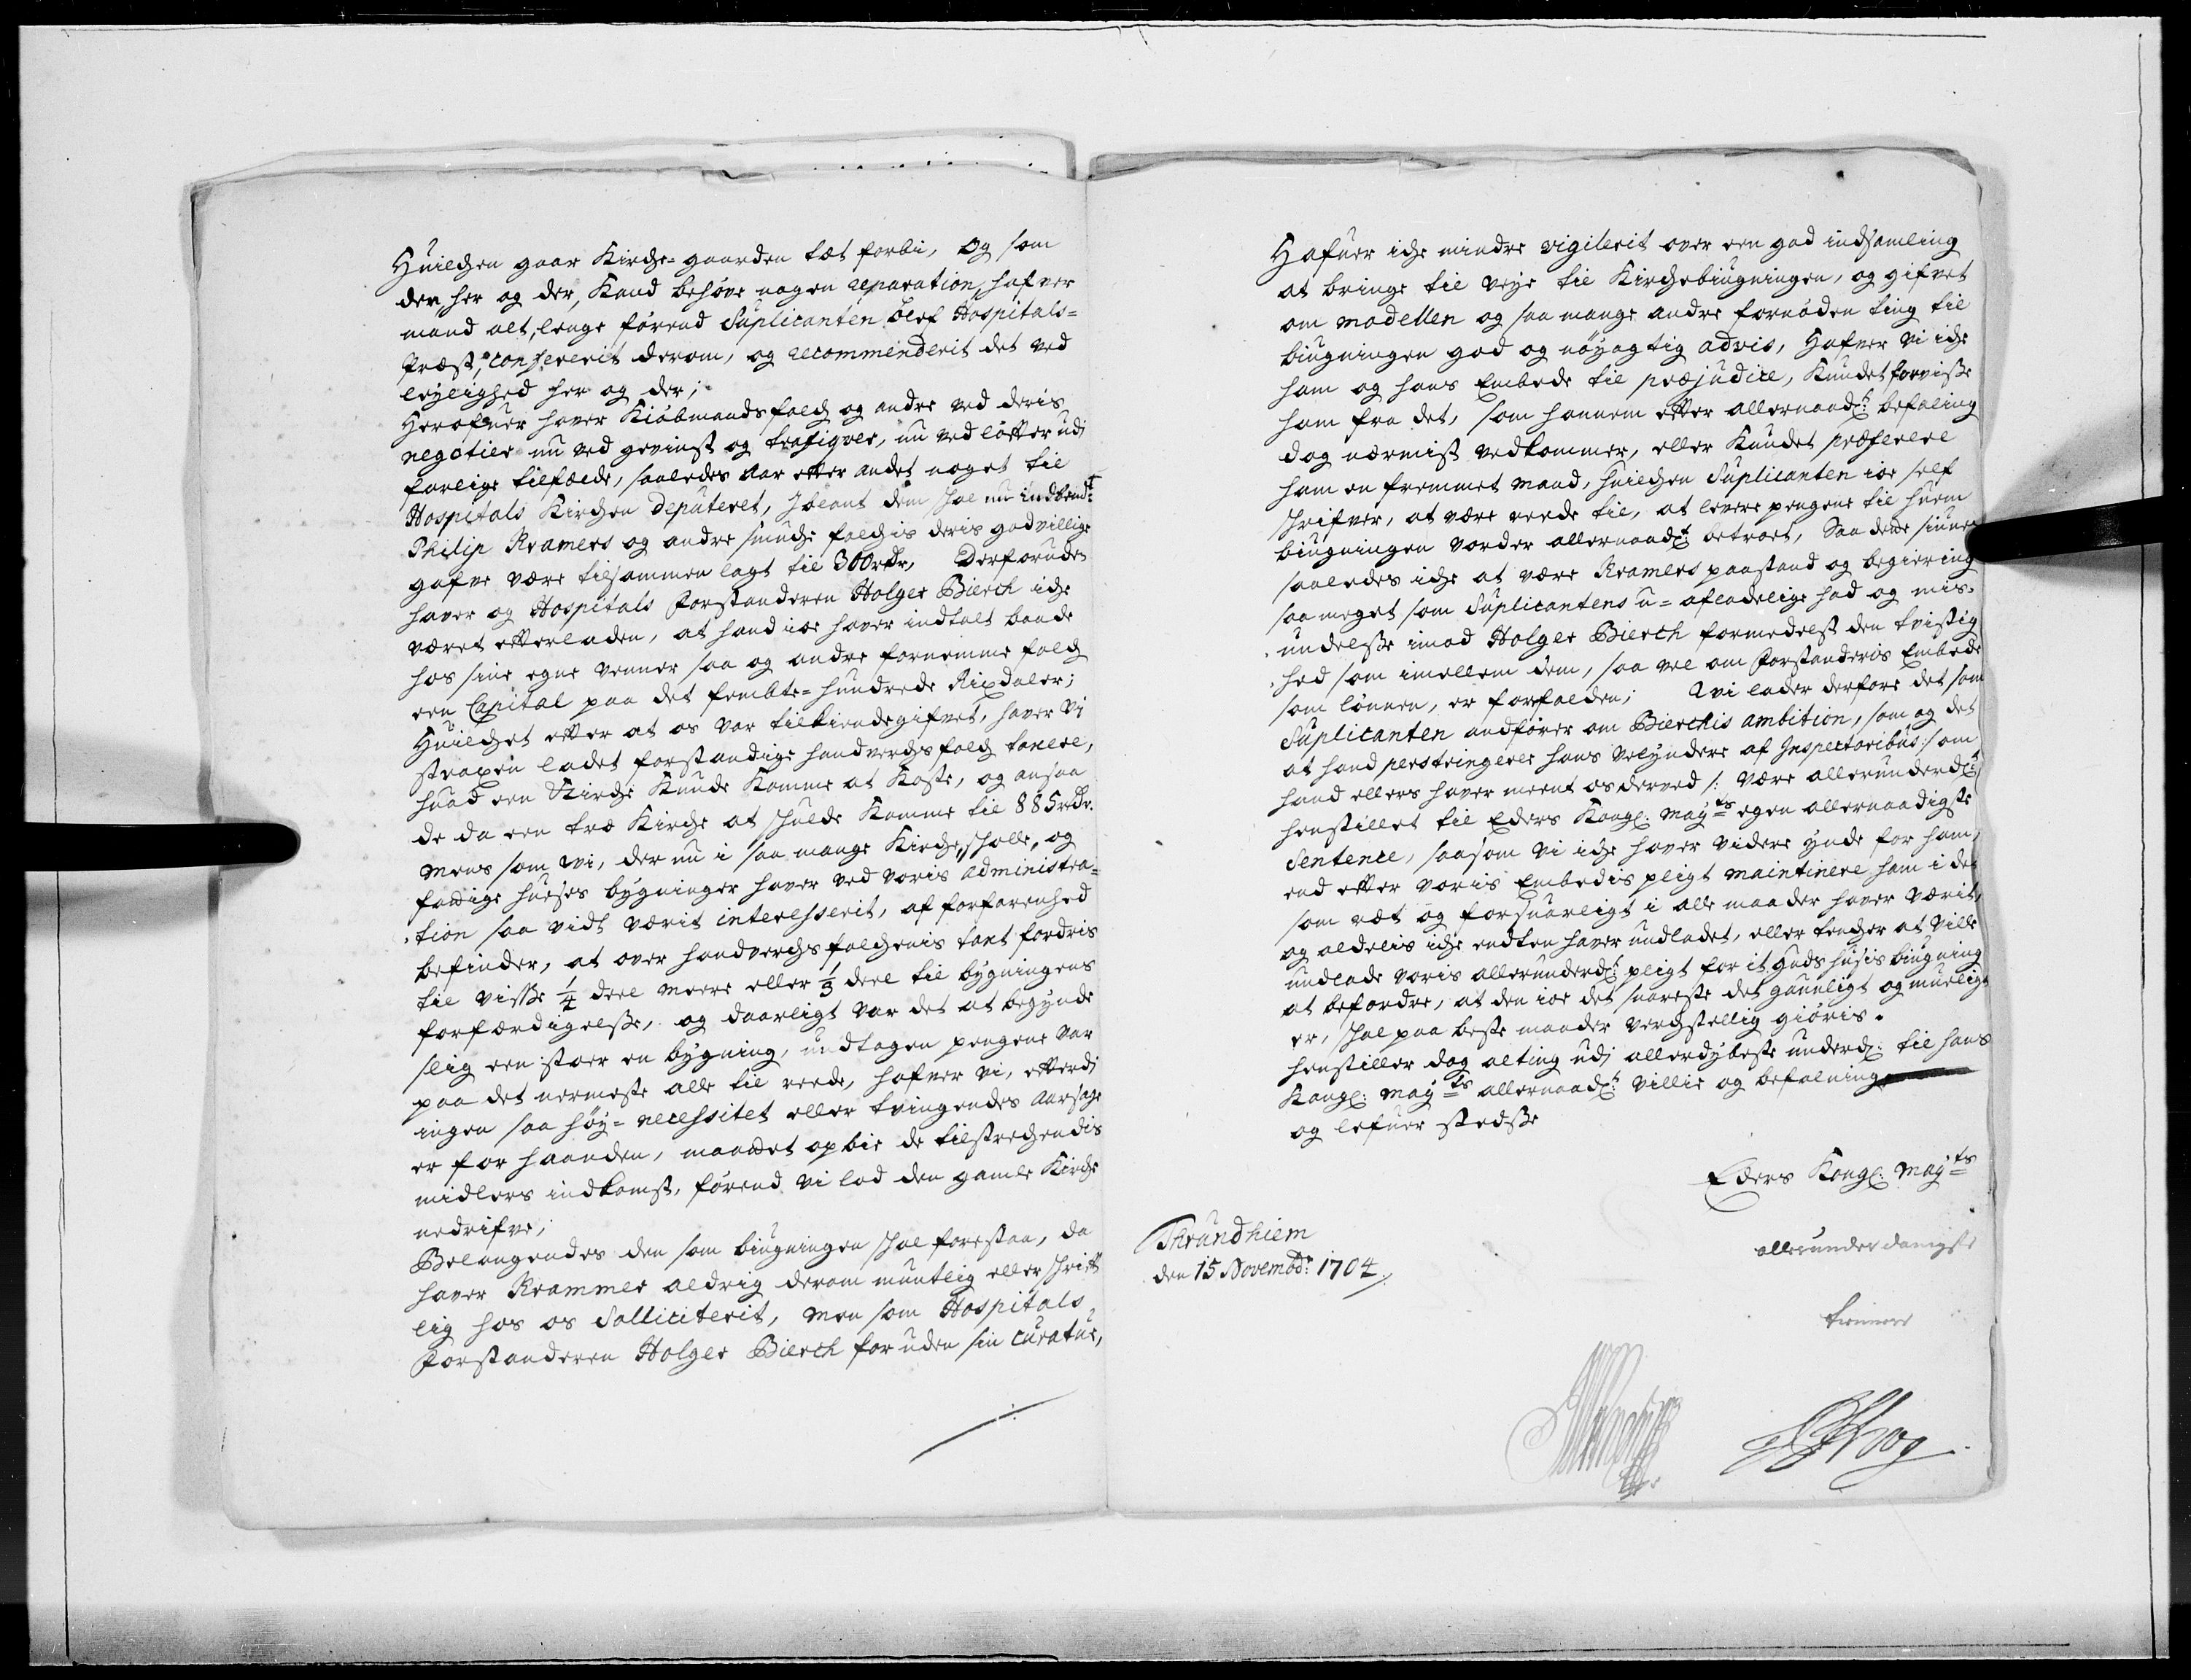 Huilchen gaar Kirche-gaarden tæt forbi, Og som
den, her og der, Kand behöve nogen reparation, hafver
mand alt, lenge förend Suplicanten blef Hospitals-
Præst, confererit derom, og recommenderit det ved
leylighed her og der;
Herofuer haver Kiöbmandsfolch og andre ved deris
negotier nu ved gevinst og trafiqver, nu ved löfter udi
farlige tilfælde, saaledes Aar efter andet noget til
Hospitals Kirchen deputeret, Iblant dem skal nu indbemt
Philip Kramers og andre smuche folchis deris godvillige
gafve være tilsammen lagt til 300rdr, Derforuden
haver og Hospitals Forstanderen Holger Bierch iche
været efterladen, at hand ioe haver indtalt baade
hos sine egne venner saa og andre fornemme folch
een Capital paa det fembte-hundrede Rixdaler;
Huilchet efter at os var tilkiendegifvet, haver Vi
straxen ladet forstandige handverchsfolch taxere,
huad een Kirche Kunde Komme at Koste, og ansaa
de da een træ Kirche at skulde Komme til 885rdr.
Mens som Wi, der nu i saa mange Kirche, skolle, og
fattige huses bygninger haver ved voris administra-
tion saa vidt værit interesserit, af forfarenhed
befinder, at over handverchsfolchenis taxt fordris
til visse 1/4 deel meere eller 1/3 deel til bygningens
forfærdigelsse, og daarligt var det at begynde
slig een stoer en bygning, undtagen pengene var
paa det nermeste alle til rede, hafver Vi, efterdi
ingen saa höy-necessitet eller tvingendes Aarsage
er for haanden, maattet opbie de tilstrechendis
midlers indkomst, förend Vi lod den gamle Kirche
nedrifve;
Belangendes den som biugningen skal forestaa, da
haver Krammer aldrig derom muntlig eller skrift
lig hos os Solliciterit, Men som Hospitals
Forstanderen Holger Bierch foruden sin curatur,
Hafuer iche mindre vigilerit over een god indsamling
at bringe til veye til Kirchebiugningen, og gifvet
om modellen og saa mange andre fornöden ting til
biugningen god og nöyagtig advis, Hafver Vi iche
ham og hans Embede til præjudice, Kundet forvisse
ham fra det, som hannem efter allernaadt befaling
dog nærmist vedkommer, eller Kundet præferere
ham en fremmet Mand, huilchen Suplicanten ioe self
skrifver, at være reede til, at levere pengene til huem
biugningen vorder allernaadt betroet, Saa dette siunes
saaledes iche at være Kramers paastand og begiering
saa meget som Suplicantens u-afladelige had og mis-
undelsse imod Holger Bierch formedelst den tvistig
hed som imellem dem, saa vel om Forstanderis Embede
som lönnen, er forfalden; Wi lader derfore det som
Suplicanten andförer om Bierchis ambition, som og det
at hand perstringerer hans Velyndere af Inspectoribus :/ som
hand ellers haver meent os derved /: være allerunderdt
henstillet til Eders Kongl. Mayts egen allernaadigste
Sentence, saasom Vi iche haver videre ynde for ham,
end efter voris Embedis pligt maintinere ham i det
som ræt og forsuarligt i alle maader haver værit,
og aldelis iche endten haver undladet, eller tencher at ville
undlade voris allerunderdt pligt for it Guds husis biugning
at befordre, at den ioe det snareste det gaunligt og mueligt
er, skal paa beste maader verchstellig giöris.
henstiller dog alting udi allerdybeste underd. til hans
Kongl. Mayts allernaadt villie og befalning
og lefuer stedsse
Eders Kongl. Mayts
allerunderdanigste
Thrundhiem
den 15 Novembr 1704
tienner